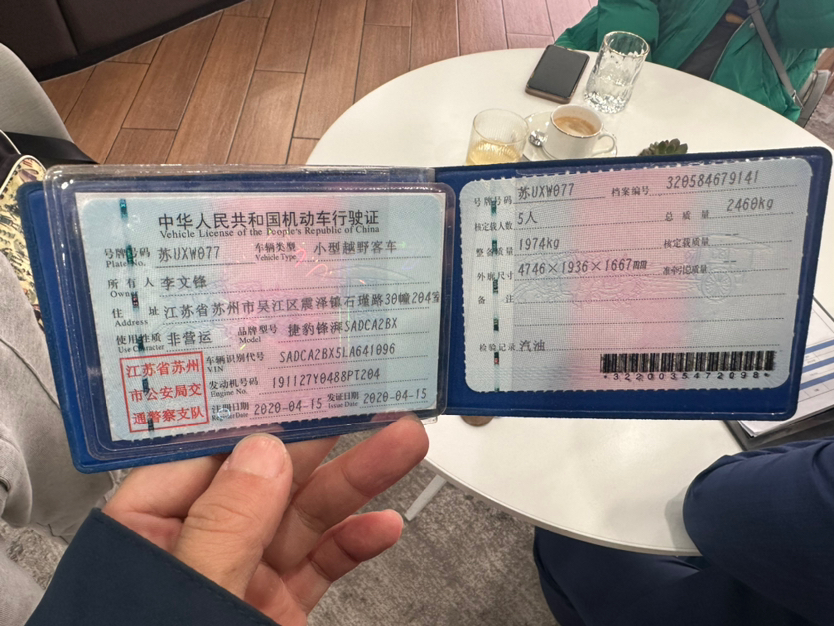 中华人民共和国机动车行驶证
Vehicle License of the People's Republic of China
号牌号码 苏UXW077 车辆类型 小型越野客车
Plate No. Vehicle Type
所有人 李文锋
Owner
住址 江苏省苏州市吴江区震泽镇石瑾路30幢204室
Address
使用性质 非营运 品牌型号 捷豹锋湃SADCA2BX
Use Character Model
江苏省苏州
市公安局交
通警察支队
车辆识别代号 SADCA2BX5LA641096
VIN
发动机号码 191127Y0488PT204
Engine No.
注册日期 2020-04-15 发证日期 2020-04-15
Register Date Issue Date
号牌号码 苏UXW077 档案编号 320584679141
核定载人数 5人 总质量 2460kg
整备质量 1974kg 核定载质量 --
外廓尺寸 4746×1936×1667mm 准牵引总质量 --
备注
检验记录 汽油
*3220035472098*